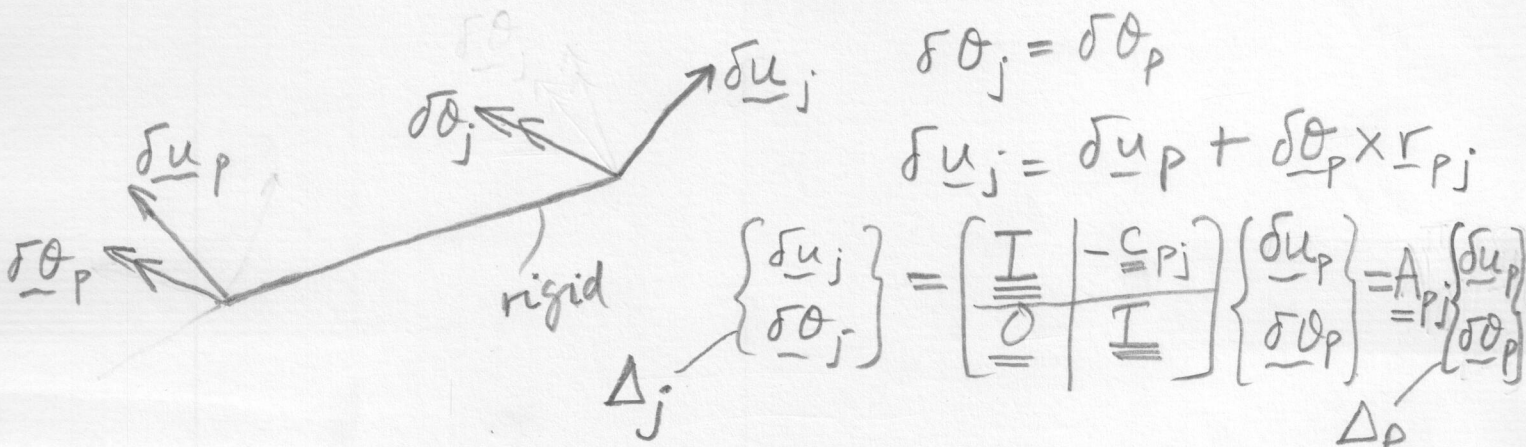 δu̲_p
δθ̲_p
δθ_j
δu̲_j
rigid
δθ_j = δθ_p
δu̲_j = δu̲_p + δθ̲_p × r̲_pj
{δu̲_j δθ̲_j} = [I̲̲ | -c̲̲_pj ; 0̲̲ | I̲̲] {δu̲_p δθ̲_p} = A̲̲_pj {δu̲_p δθ̲_p}
Δ_j
Δ_p